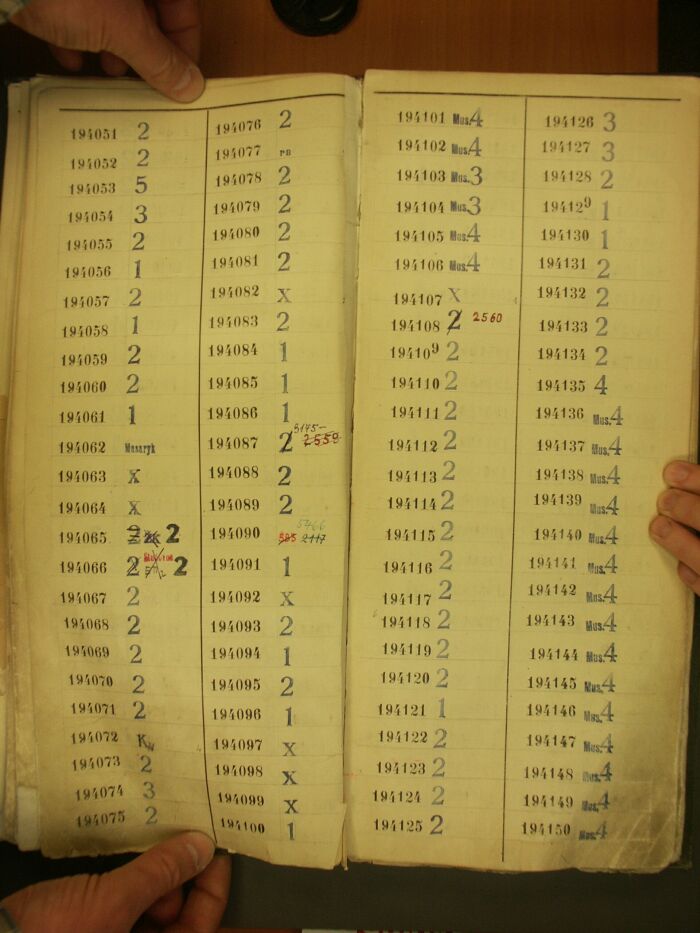 194051 2
194052 2
194053 5
194054 3
194055 2
194056 1
194057 2
194058 1
194059 2
194060 2
194061 1
194062 Masaryk
194063 X
194064 X
194065 2 2
194066 2 2
194067 2
194068 2
194069 2
194070 2
194071 2
194072 Kw
194073 2
194074 3
194075 2
194076 2
194077 PB
194078 2
194079 2
194080 2
194081 2
194082 X
194083 2
194084 1
194085 1
194086 1
194087 2 3145- 2559
194088 2
194089 2
194090 385 2117 5466
194091 1
194092 X
194093 2
194094 1
194095 2
194096 1
194097 X
194098 X
194099 X
194100 1
194101 Mus.4
194102 Mus.4
194103 Mus.3
194104 Mus.3
194105 Mus.4
194106 Mus.4
194107 X
194108 2 2560
194109 2
194110 2
194111 2
194112 2
194113 2
194114 2
194115 2
194116 2
194117 2
194118 2
194119 2
194120 2
194121 1
194122 2
194123 2
194124 2
194125 2
194126 3
194127 3
194128 2
194129 1
194130 1
194131 2
194132 2
194133 2
194134 2
194135 4
194136 Mus.4
194137 Mus.4
194138 Mus.4
194139 Mus.4
194140 Mus.4
194141 Mus.4
194142 Mus.4
194143 Mus.4
194144 Mus.4
194145 Mus.4
194146 Mus.4
194147 Mus.4
194148 Mus.4
194149 Mus.4
194150 Mus.4